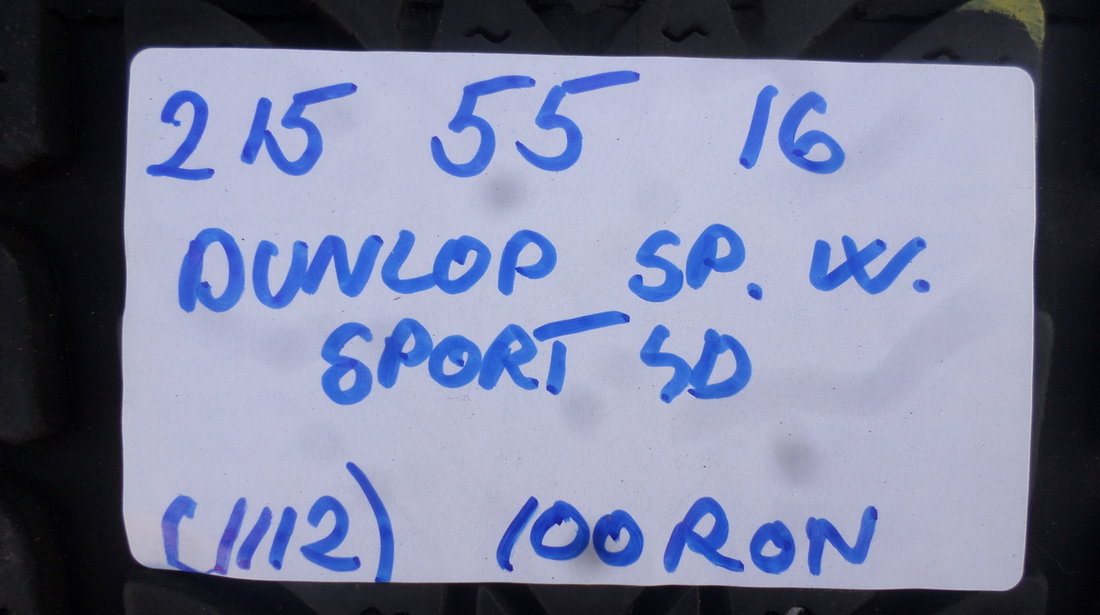 215 55 16
DUNLOP SP. W.
SPORT SD
(1112) 100 RON